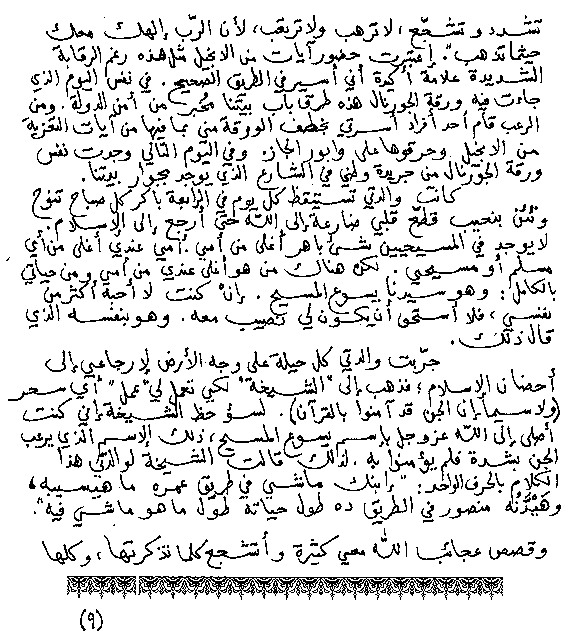 تشدد وتشجّع، لا ترهب ولا ترتعب، لأن الرّب إلهك معك
حيثما تذهب". إعتبرت حضور آيات من الإنجيل مثل هذه رغم الرقابة
الشديدة علامة أكيدة أني أسير في الطريق الصحيح. في نفس اليوم الذي
جاءت فيه ورقة الجورنال هذه طرق باب بيتنا مُخبر من أمن الدولة. ومن
الرعب قام أحد أفراد أسرتي بخطف الورقة مني بما فيها من آيات التعزية
من الإنجيل وحرقوها على وابور الجاز. وفي اليوم التالي وجدت نفس
ورقة الجورنال من جريدة وطني في الشارع الذي يوجد بجوار بيتنا.
كانت والدتي تستيقظ كل يوم في الرابعة باكر كل صباح تنوح
وتئن بنحيب قطّع قلبي ضارعة إلى اللّه حتى أرجع إلى الإسلام.
لا يوجد في المسيحيين شئ باهر أغلى من أمي. أمي عندي أغلى من أي
مسلم أو مسيحي. لكن هناك من هو أغلى عندي من أمي ومن حياتي
بالكامل: وهو سيدنا يسوع المسيح. إن كنت لا أحبه أكثر من
نفسي، فلا أستحق أن يكون لي نصيب معه. وهو بنفسه الذي
قال ذلك.
جرّبت والدتي كل حيلة على وجه الأرض لإرجاعي إلى
أحضان الإسلام، فذهب إلى "الشيخة" لكي تعمل لي "عمل" أي سحر
(ولا سيما إن الجن قد آمنوا بالقرآن). لسؤ حظ الشيخة إني كنت
أصلى إلى اللّه عز وجل بإسم يسوع المسيح، ذلك الإسم الذي يرعب
الجن بشدة فلم يؤمنوا به. لذلك قالت الشيخة لوالدتي هذا
الكلام بالحرف الواحد: "إبنك ماشي في طريق عمره ما هيسيبه،
منصور في الطريق ده طول حياته طول ما هو ماشي فيه".
وقصص عجائب اللّه معي كثيرة وأتشجع كلما تذكرتها، وكلها
(٩)